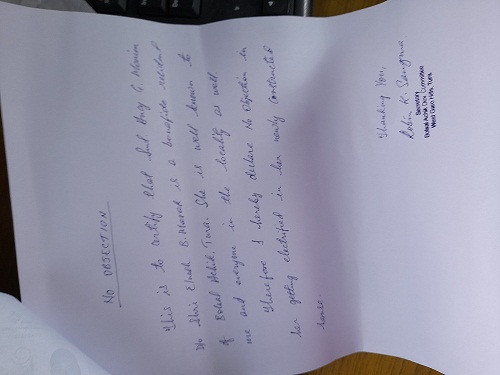 NO OBJECTION
This is to certify that Smt Ancy G. Momin
D/o Shri Elush B. Marak is a bonafide resident
of Bolsal Achik, Tura. She is well known to
me and everyone in the locality as well.
Therefore I hereby declare No Objection in
her getting electrified in her newly constructed
house
Thanking You,
Robin K. Sangma
Secretary
Dev. Committee
West Garo Hills, Tura